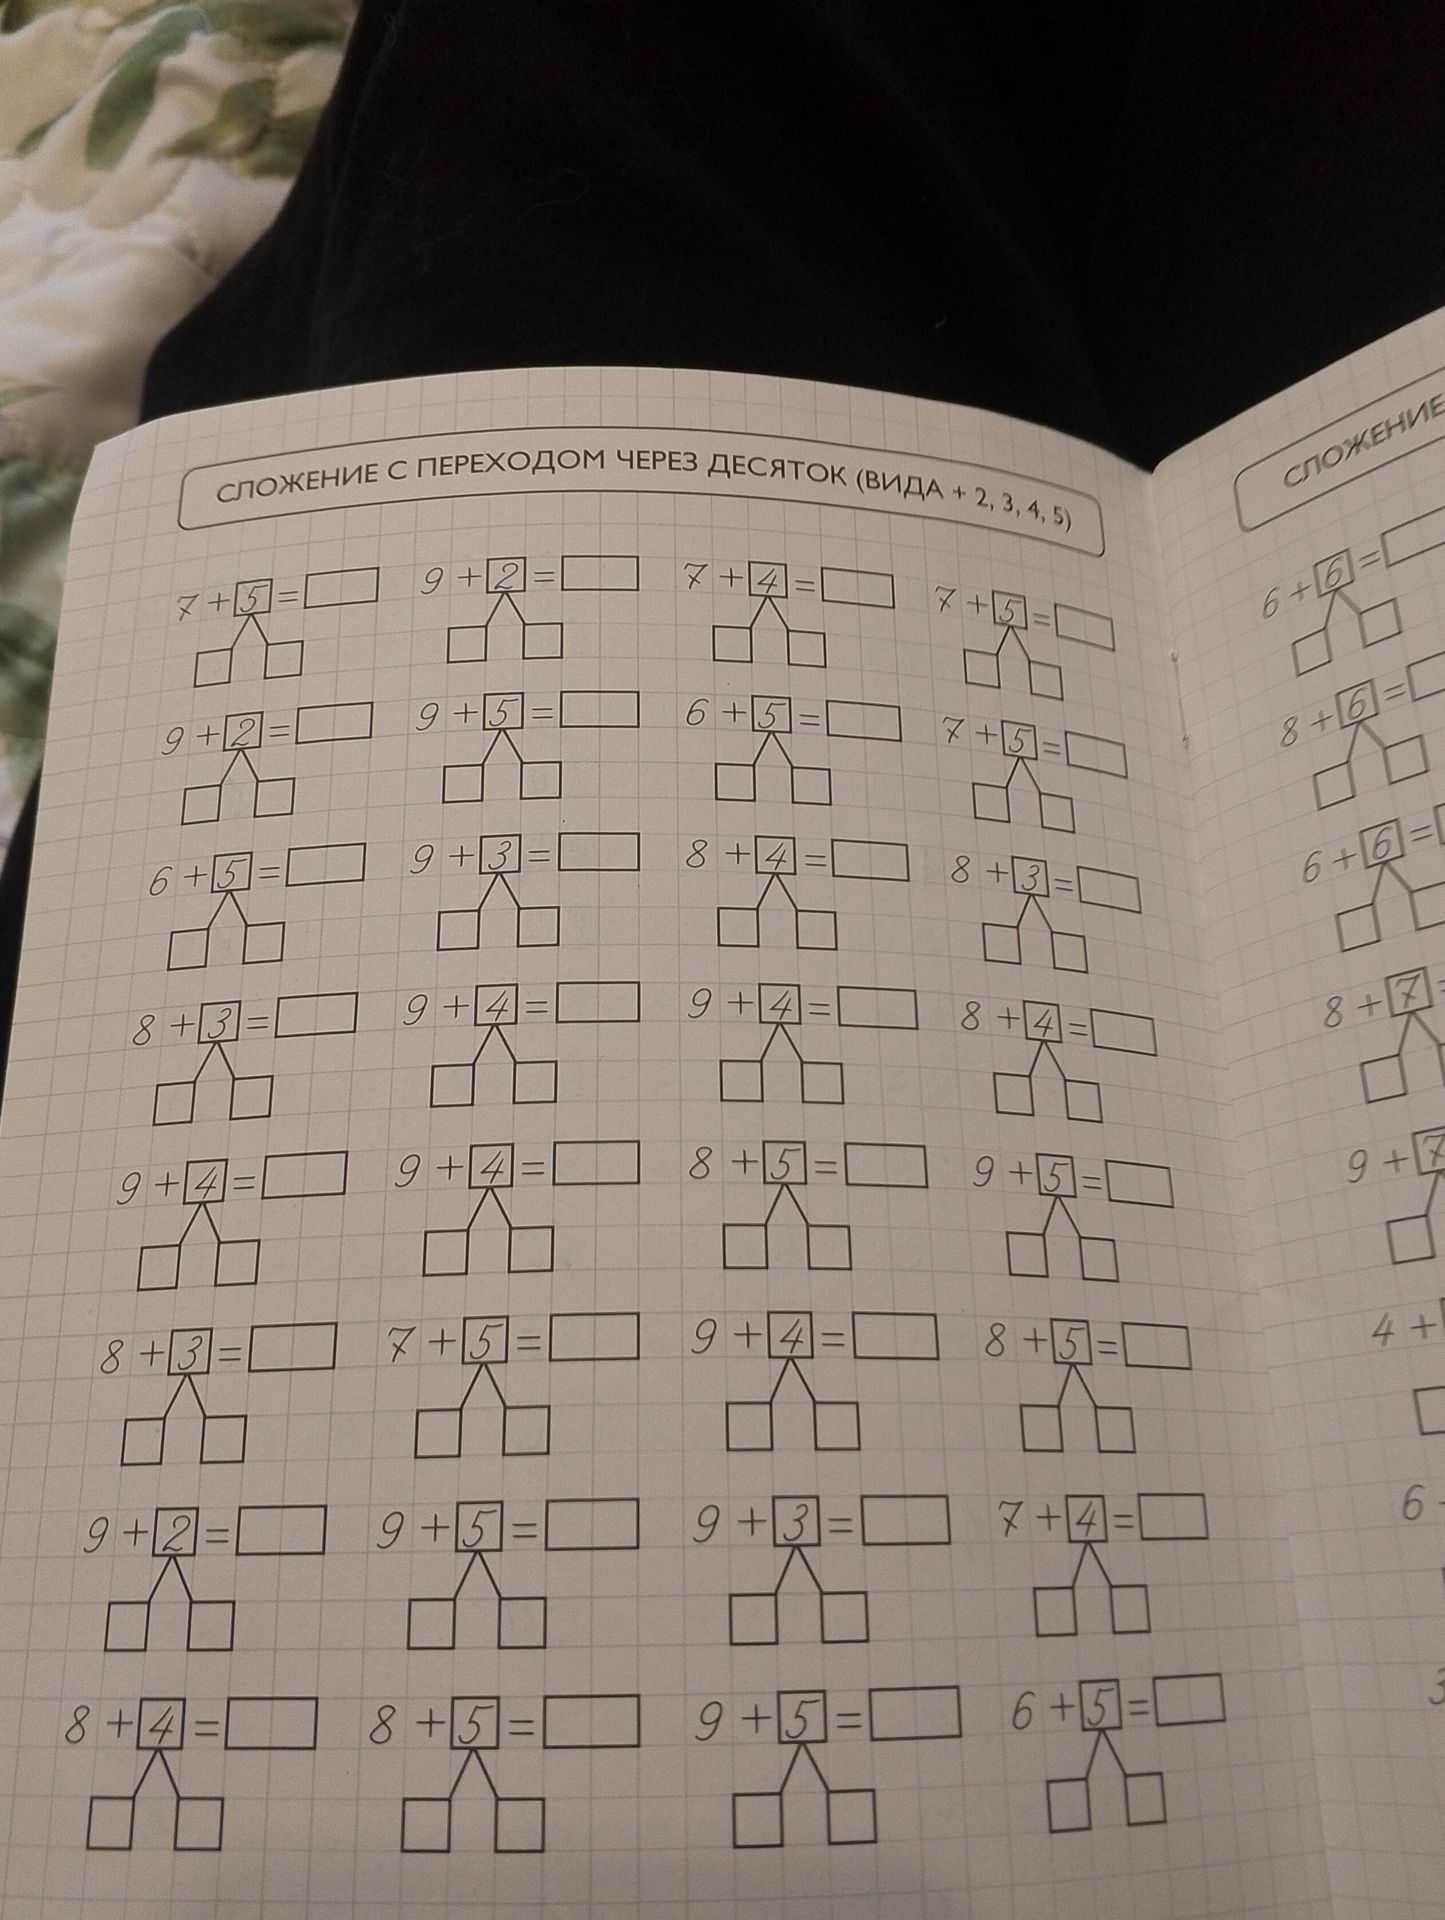 СЛОЖЕНИЕ С ПЕРЕХОДОМ ЧЕРЕЗ ДЕСЯТОК (ВИДА + 2, 3, 4, 5)
7 + 5 = 9 + 2 = 7 + 4 = 7 + 5 =
9 + 2 = 9 + 5 = 6 + 5 = 7 + 5 =
6 + 5 = 9 + 3 = 8 + 4 = 8 + 3 =
8 + 3 = 9 + 4 = 9 + 4 = 8 + 4 =
9 + 4 = 9 + 4 = 8 + 5 = 9 + 5 =
8 + 3 = 7 + 5 = 9 + 4 = 8 + 5 =
9 + 2 = 9 + 5 = 9 + 3 = 7 + 4 =
8 + 4 = 8 + 5 = 9 + 5 = 6 + 5 =
СЛОЖЕНИЕ
6 + 6 =
8 + 6 =
6 + 6 =
8 + 7 =
9 + 7
4 +
6
3